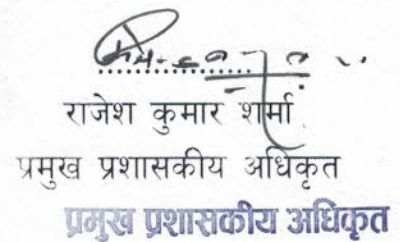 राजेश कुमार शर्मा
प्रमुख प्रशासकीय अधिकृत
प्रमुख प्रशासकीय अधिकृत